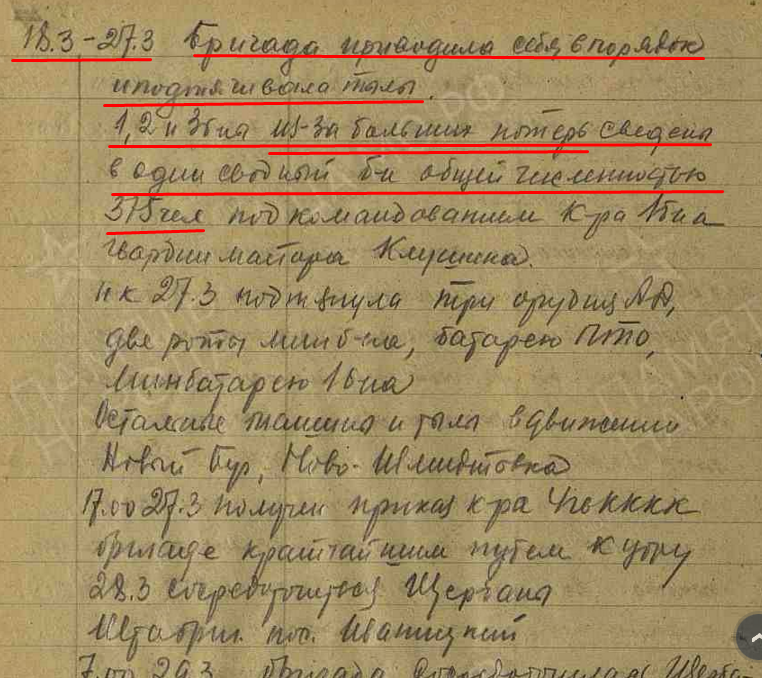 18.3-27.3 Бригада приводила себя в порядок
и подтягивала тылы.
1, 2 и 3 б-на из-за больших потерь сведены
в один сводный б-н общей численностью
375 чел под командованием к-ра 1 б-на
гвардии майора Клушина.
и к 27.3 подтянула три орудия АД,
две роты мин б-на, батарею ПТО,
Минбатарею 1 б-на
Остальные машины и тылы в движении
Новый Буг, Ново-
17.00 27.3 получен приказ к-ра
бригаде кратчайшим путем к утру
28.3 сосредоточиться Щербани
Штабриг. пос. Иваницкий
7.00 29.3 бригада сосредоточилась